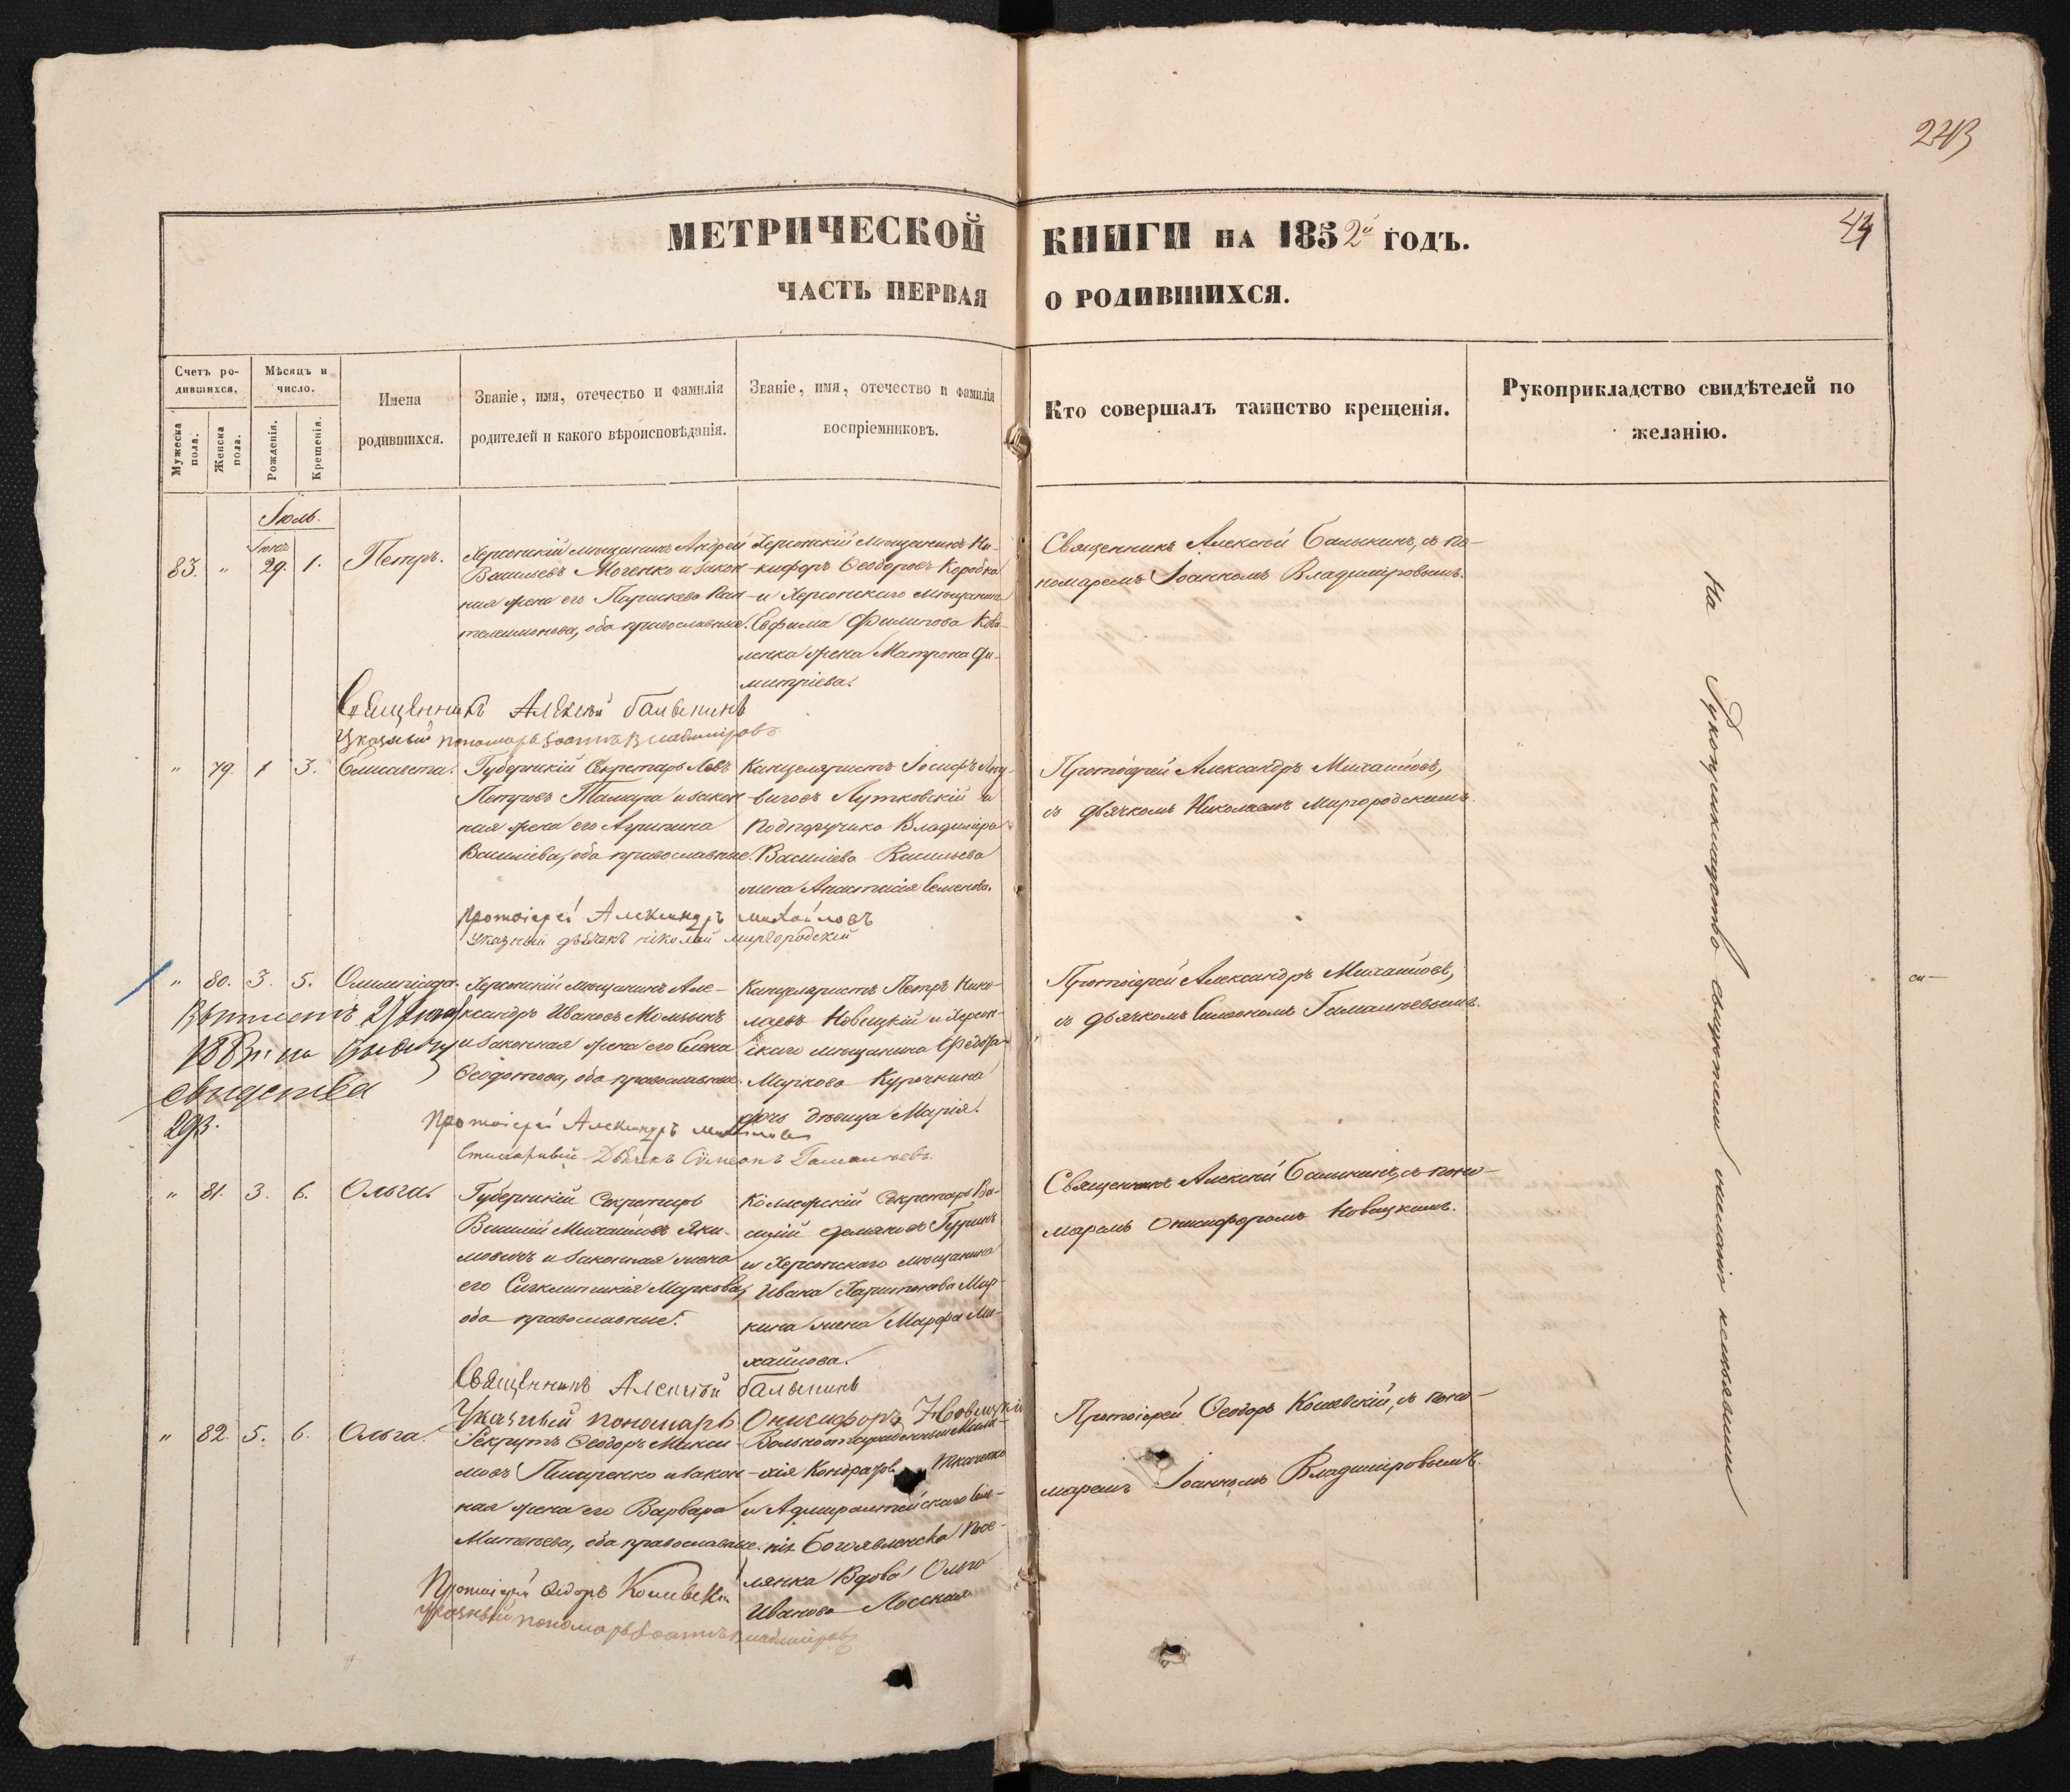 243
МЕТРИЧЕСКОЙ КНИГИ НА 1852й ГОДЪ.
ЧАСТЬ ПЕРВАЯ О РОДИВШИХСЯ.
Счетъ ро-
дившихся.
Мужеска пола.
Женска пола.
Мѣсяцъ и
число.
Рожденія.
Крещенія.
Имена
родившихся.
Званіе, имя, отечество и фамилія
родителей и какого вѣроисповѣданія.
Званіе, имя, отечество и фамилія
воспріемниковъ.
Кто совершалъ таинство крещенія.
Рукоприкладство свидѣтелей по
желанію.
Іюль.
83. " 29. 1. Петръ.
Херсонскій мѣщанинъ Андрей
Васильевъ Моченко и закон-
ная жена его Параскева Пан-
телеимонова, оба православные.
Херсонскій мѣщанинъ Ни-
кифоръ Ѳеодоровъ Коробка
и Херсонскаго мѣщанина
Евфима Филипова Кова-
ленка жена Матрона Ди-
митріева.
Священникъ Алексѣй Балыкинъ, съ по-
номаремъ Іоанномъ Владиміровымъ.
Священникъ Алексѣй Балыкинъ
Указный пономарь Іоаннъ Владиміровъ
" 79. 1 3. Елисавета.
Губернскій Секретарь Левъ
Петровъ Тамара и закон-
ная жена его Агрипина
Василіева, оба православные.
Канцеляристъ Іосифъ
Лутковскій и
Подпоручика Владиміра
Василіева Васильева
жена Анастасія Семенова.
Протоіерей Александръ Михайловъ,
съ дьячкомъ Николаемъ Миргородскимъ.
Протоіерей Александръ Михайловъ
Указный дьячекъ Николай Миргородскій
" 80. 3. 5. Олимпіада.
Херсонскій мѣщанинъ Але-
ксандръ Ивановъ
и законная жена его Елена
Ѳеодотова, оба православные.
Канцеляристъ Петръ Нико-
лаевъ Новицкій и Херсон-
скаго мѣщанина Ѳедора
Маркова Курочкина
дочь дѣвица Марія.
Протоіерей Александръ Михайловъ,
съ дьячкомъ Симеономъ Гамалѣевымъ.
свидетва
Протоіерей Александръ Михайловъ
Дьячекъ Симеонъ Гамалѣевъ.
" 81. 3. 6. Ольга.
Губернскій Секретарь
Василій Михайловъ Яки-
мовичъ и законная жена
его Синклитикія Маркова,
оба православные.
Коллежскій Секретарь Ва-
силій
и Херсонскаго мѣщанина
Ивана Харитонова Мар-
кина жена Марфа Ми-
хайлова.
Священникъ Алексѣй Балыкинъ, съ поно-
маремъ Онисифоромъ Новицкимъ.
Священникъ Алексѣй Балыкинъ
Указный пономарь Онисифоръ Новицкій
" 82. 5. 6. Ольга.
Рекрутъ Ѳеодоръ Макси-
мовъ Писаренко и закон-
ная жена его Варвара
Матвѣева, оба православные.
хія Кондратов Ткаченко
и Адмиралтейскаго Селе-
нія Богоявленска посе-
лянка Вдова Ольга
Иванова Лосская.
Протоіерей Ѳеодоръ Кошевскій, съ поно-
маремъ Іоанномъ Владиміровымъ.
Протоіерей Ѳеодоръ Кошевскій
Указный пономарь Іоаннъ Владиміровъ
На Рукоприкладство свидѣтели желанія неизъявили